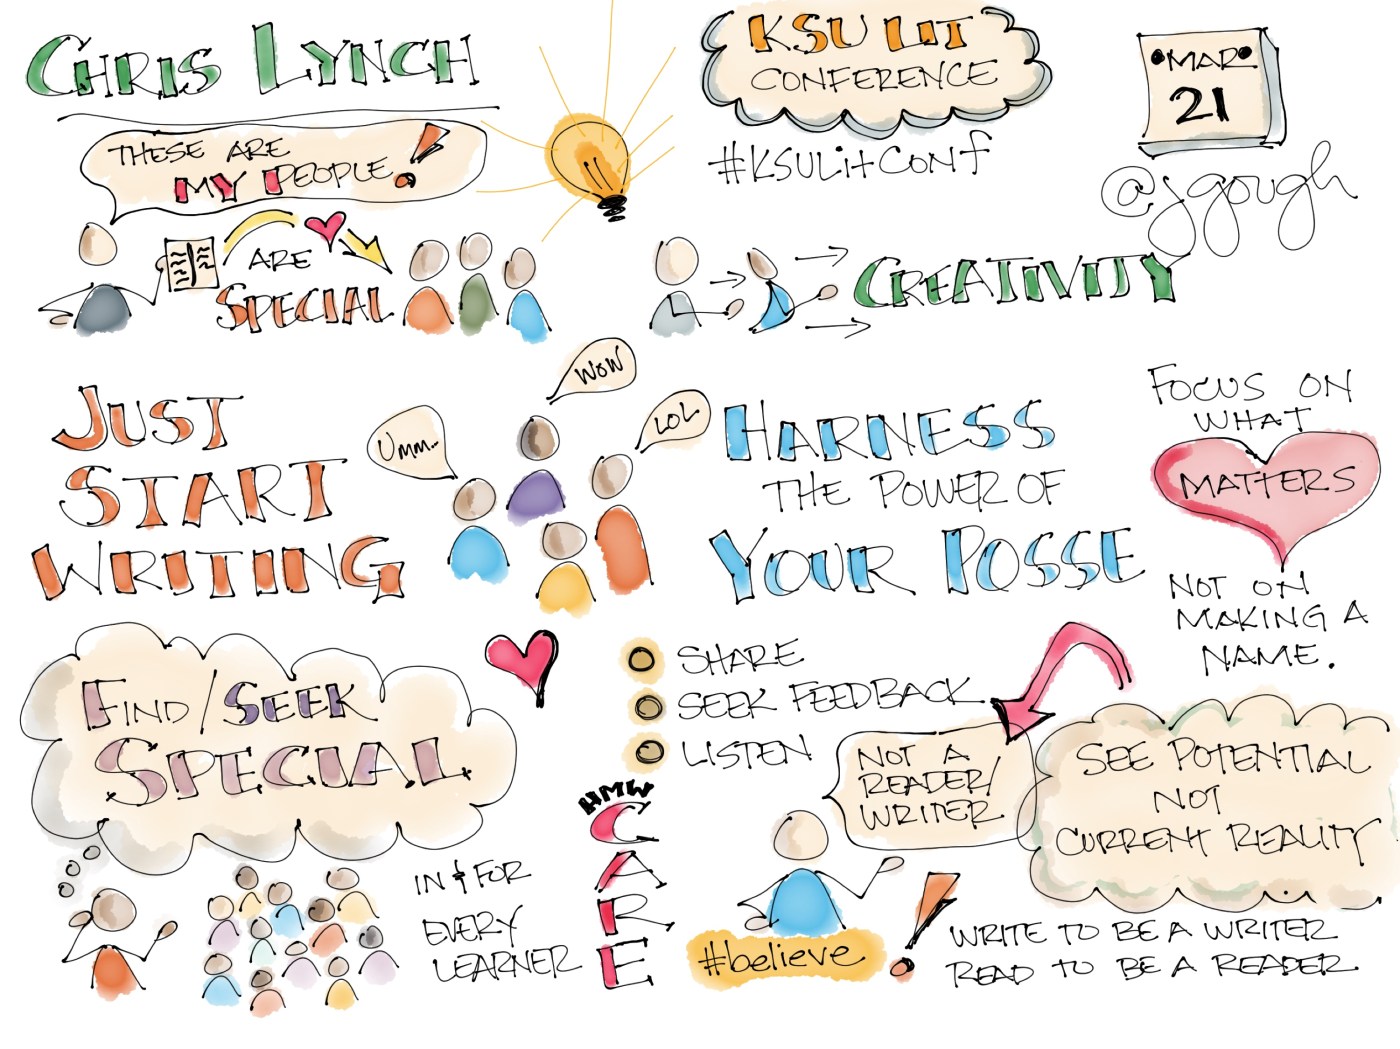 CHRIS LYNCH
KSU LIT
CONFERENCE
#KSULitConf
MAR
21
@jgough
THESE ARE
MY PEOPLE!
ARE
SPECIAL
CREATIVITY
JUST
START
WRITING
Umm..
WOW
LOL
HARNESS
THE POWER OF
YOUR POSSE
FOCUS ON
WHAT
MATTERS
NOT ON
MAKING A
NAME.
FIND/SEEK
SPECIAL
IN & FOR
EVERY
LEARNER
SHARE
SEEK FEEDBACK
LISTEN
HMW
CARE
NOT A
READER/
WRITER
SEE POTENTIAL
NOT
CURRENT REALITY
#believe
! WRITE TO BE A WRITER
READ TO BE A READER